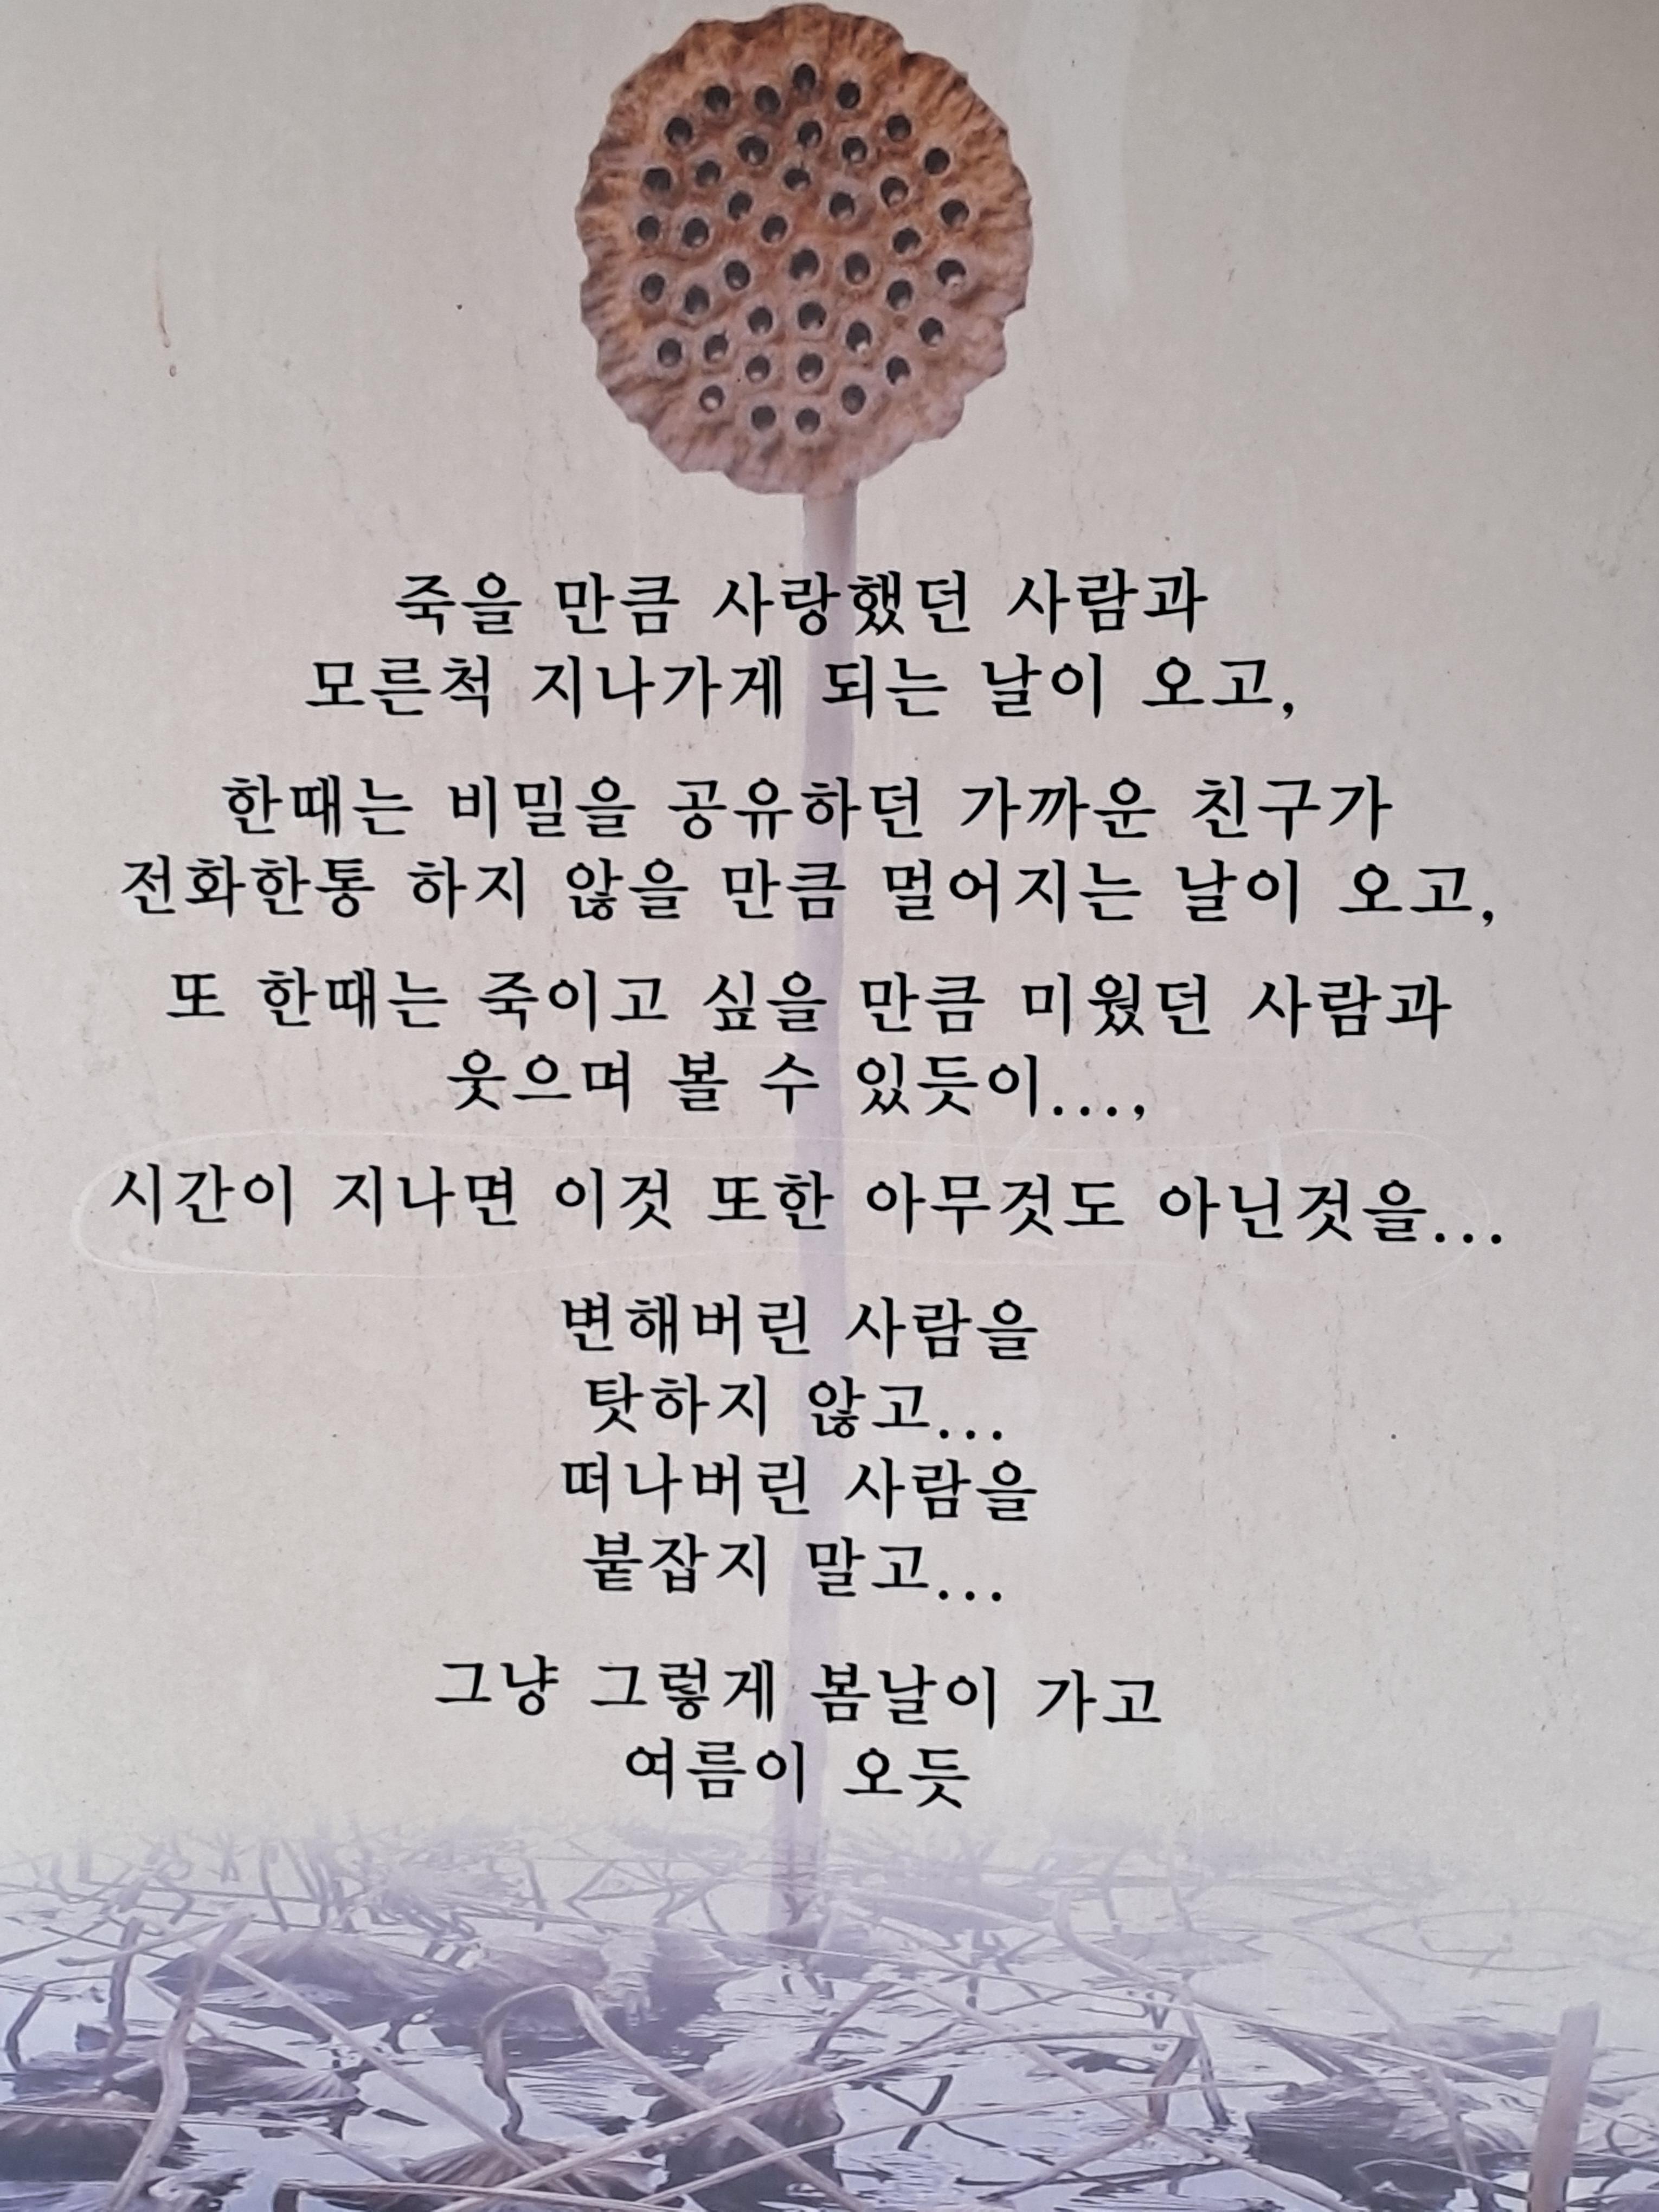 죽을 만큼 사랑했던 사람과
모른척 지나가게 되는 날이 오고,
한때는 비밀을 공유하던 가까운 친구가
전화한통 하지 않을 만큼 멀어지는 날이 오고,
또 한때는 죽이고 싶을 만큼 미웠던 사람과
웃으며 볼 수 있듯이...,
시간이 지나면 이것 또한 아무것도 아닌것을...
변해버린 사람을
탓하지 않고...
떠나버린 사람을
붙잡지 말고...
그냥 그렇게 봄날이 가고
여름이 오듯